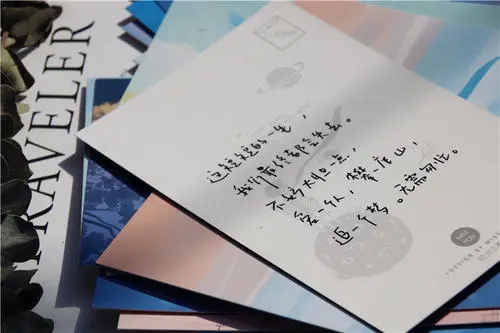 TRAVELER
这短短的一生，
我们最终都会失去。
不妨大胆一点，
爱一个人，攀一座山，
追一个梦。无需而已。
DESIGN BY MISS